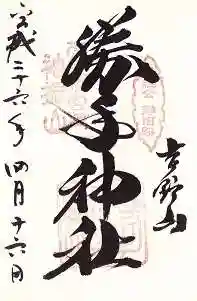 吉野山
勝手神社
平成二十六年四月十六日